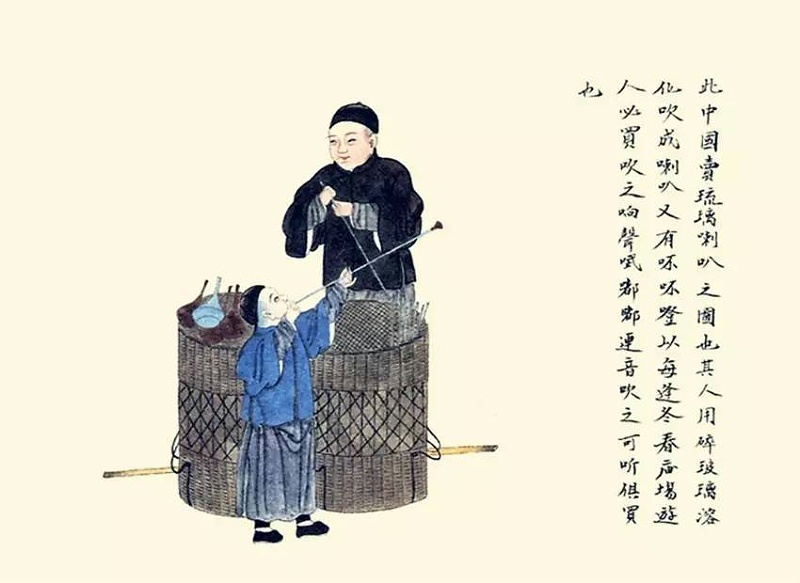 此中國賣琉璃喇叭之圖也其人用碎玻璃溶
化吹成喇叭又有呸呸蹬以每逢冬春庙場遊
人必買吹之响聲嘟嘟連音吹之可听俱買
也